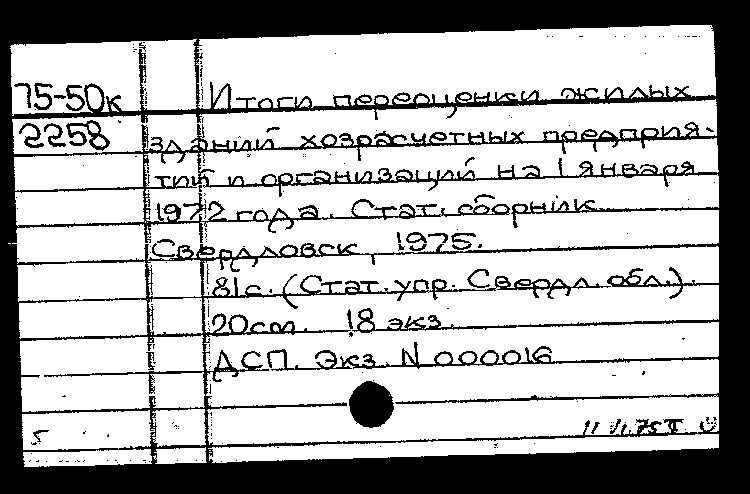 75-50к Итоги переоценки жилых
2258 зданий хозрасчетных предприя-
тий и организаций на 1 января
1972 года. Стат. сборник.
Свердловск, 1975.
81с. (Стат. упр. Свердл. обл.).
20см. 18 экз.
ДСП. Экз. N 000016
5 11 VI.75